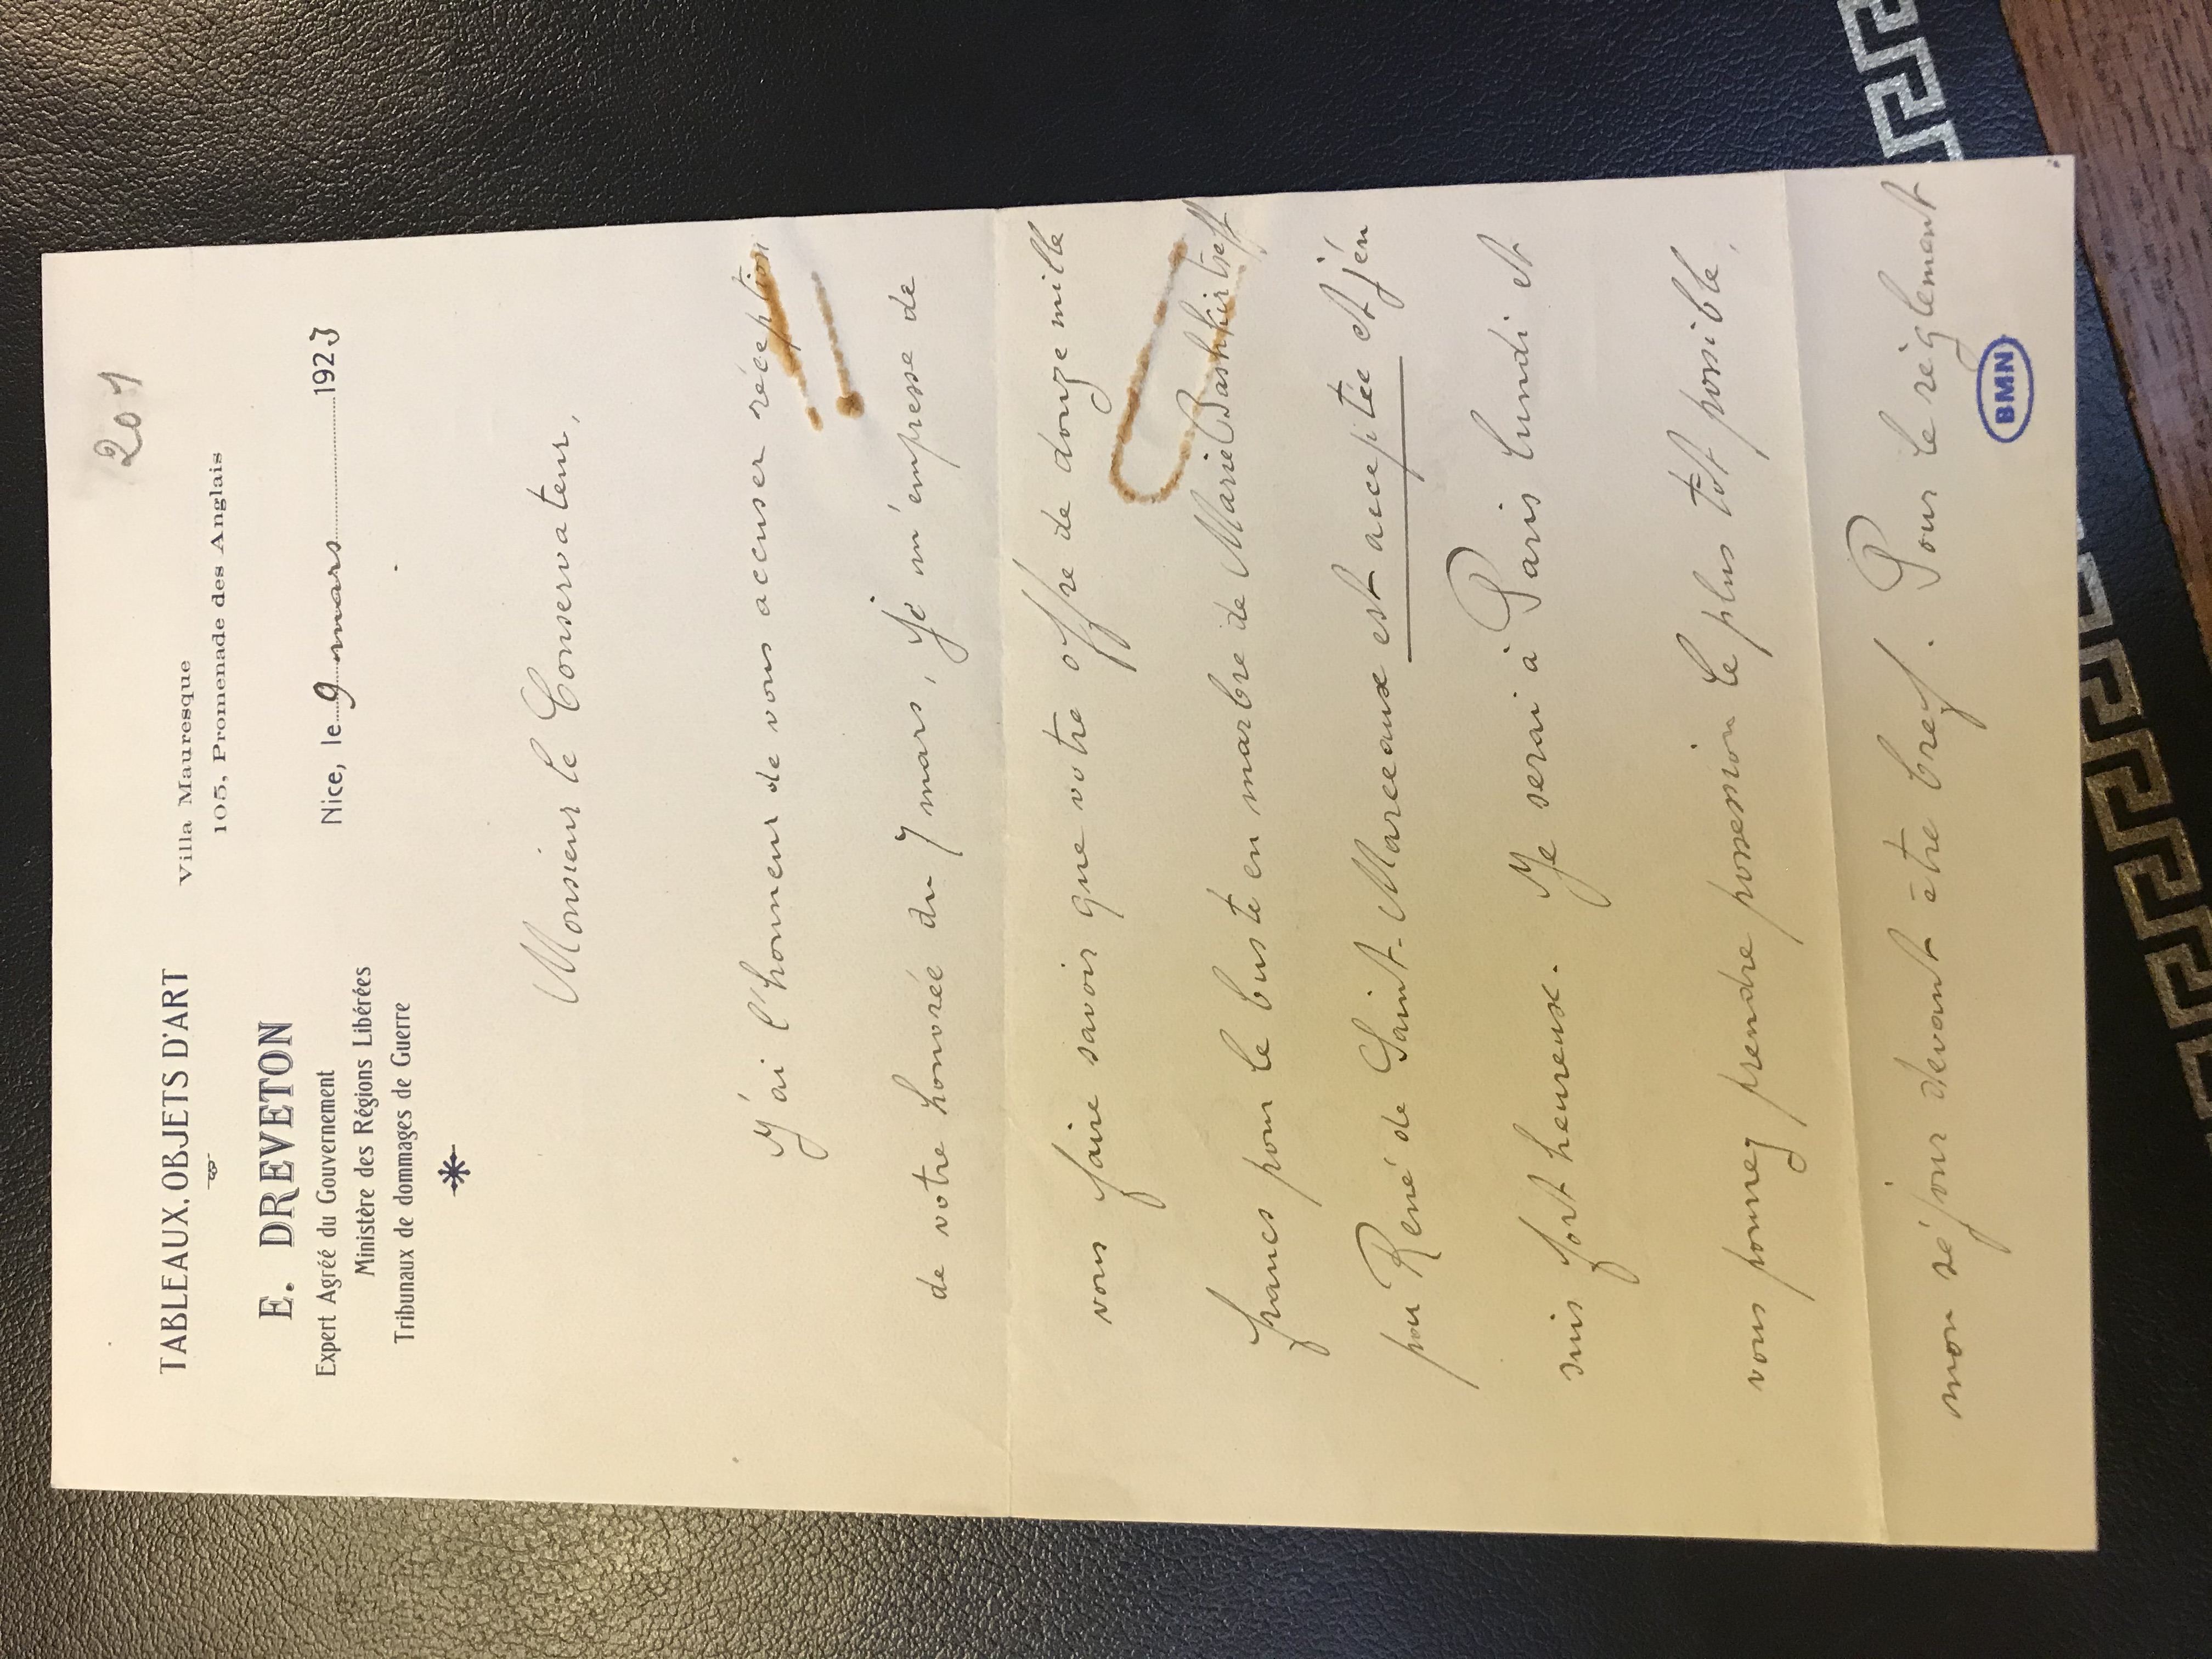 207
TABLEAUX. OBJETS D'ART
Villa Mauresque
105, Promenade des Anglais
E. DREVETON
Expert Agréé du Gouvernement
Ministère des Régions Libérées
Tribunaux de dommages de Guerre
Nice, le 9 mars 1923
Monsieur le Conservateur,
J'ai l'honneur de vous accuser réception
de votre honorée du 7 mars, Je m'empresse de
vous faire savoir que votre offre de douze mille
francs pour le buste en marbre de Marie Bashkirtseff
par René de Saint-Marceaux est acceptée et j'en
suis fort heureux. Je serai à Paris lundi et
vous pourrez prendre possession le plus tôt possible,
mon séjour devant être bref. Pour le règlement
BMN